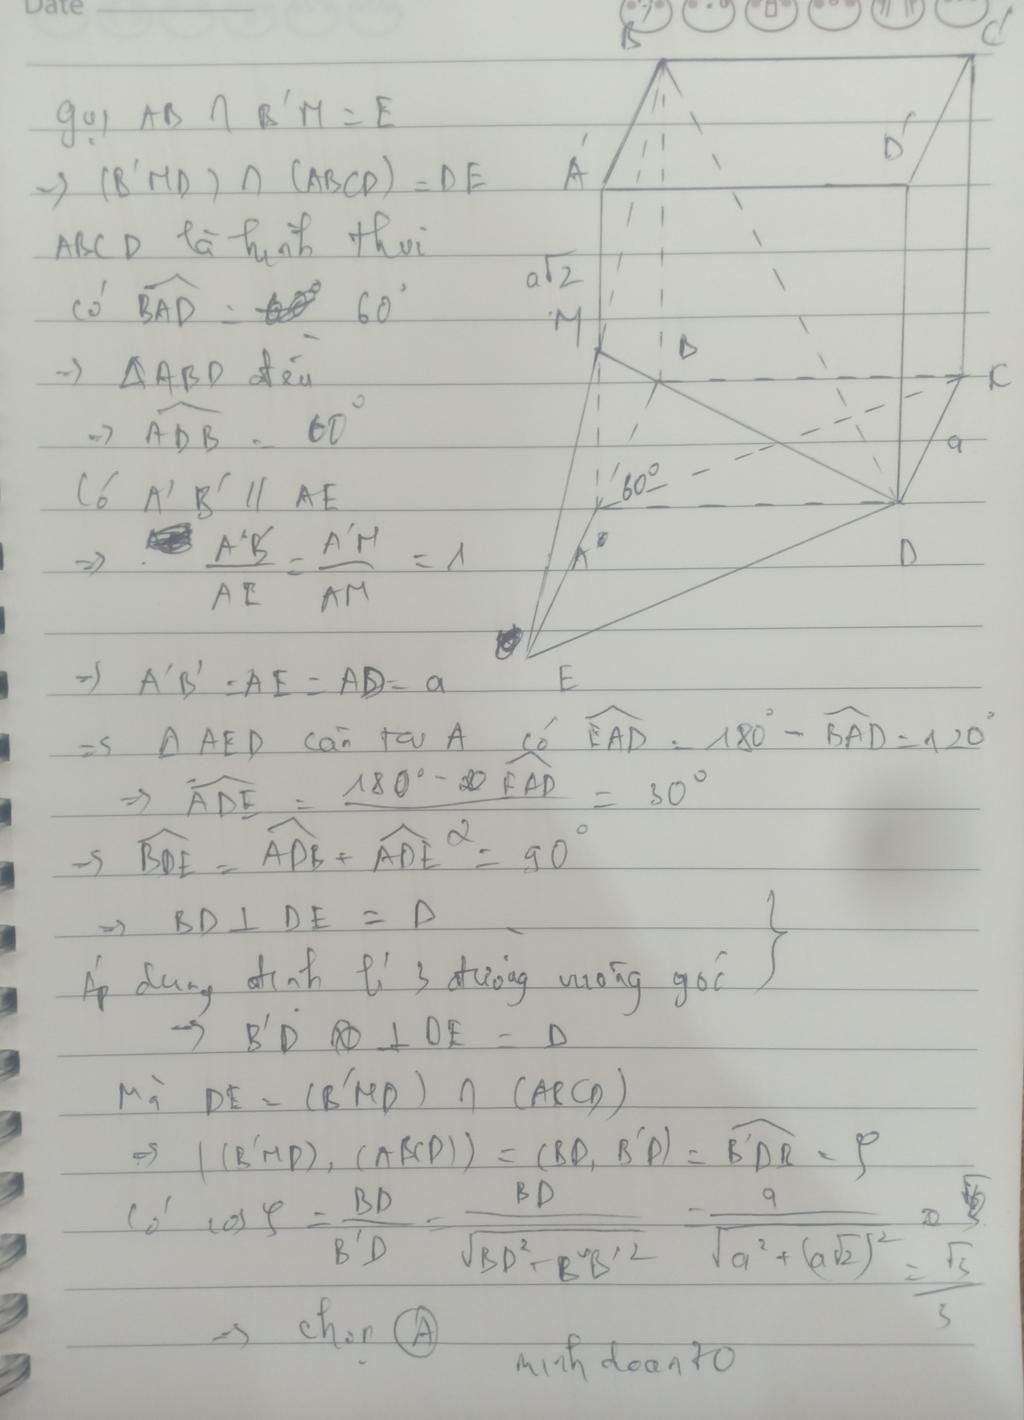 Date
B'
C'
gọi AB ∩ B'M = E
A'
D'
→ (B'MD) ∩ (ABCD) = DE
ABCD là hình thoi
a√2
có BAD = 60°
M
B
→ ΔABD đều
C
→ ADB = 60°
a
60°
Có A'B' // AE
A
D
⇒ A'B'/AE = A'M/AM = 1
E
→ A'B' = AE = AD = a
⇒ Δ AED cân tại A có EAD = 180° - BAD = 120°
⇒ ADE = (180° - EAD)/2 = 30°
⇒ BDE = ADB + ADE = 90°
⇒ BD ⊥ DE = D
Áp dụng định lí 3 đường vuông góc
→ B'D ⊥ DE = D
Mà DE = (B'MD) ∩ (ABCD)
⇒ ((B'MD), (ABCD)) = (BD, B'D) = B'DB = φ
Có cos φ = BD/B'D = BD/√(BD² + B'B'²) = a/√(a² + (a√2)²) = √3/3
⇒ chọn A
minhdoan70